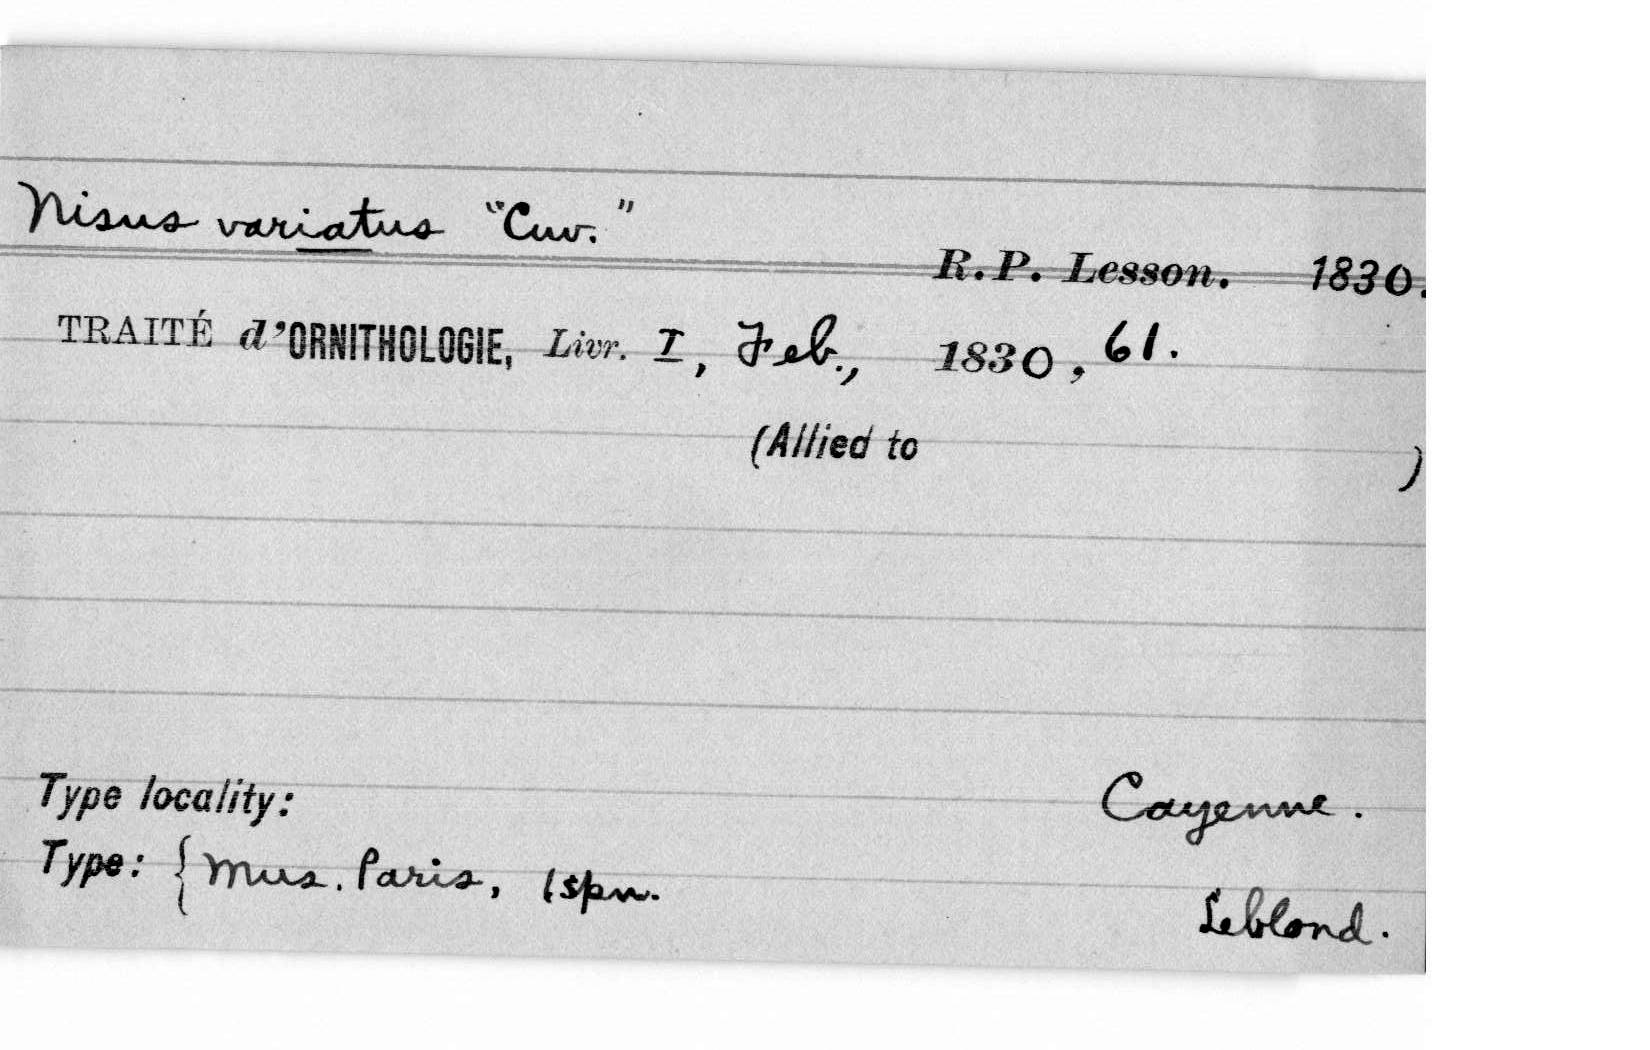 Nisus variatus "Cuv."
R.P. Lesson. 1830.
TRAITÉ d'ORNITHOLOGIE, Livr. I, Feb., 1830, 61.
(Allied to )
Type locality: Cayenne.
Type: { Mus. Paris, 1 spn.
Leblond.